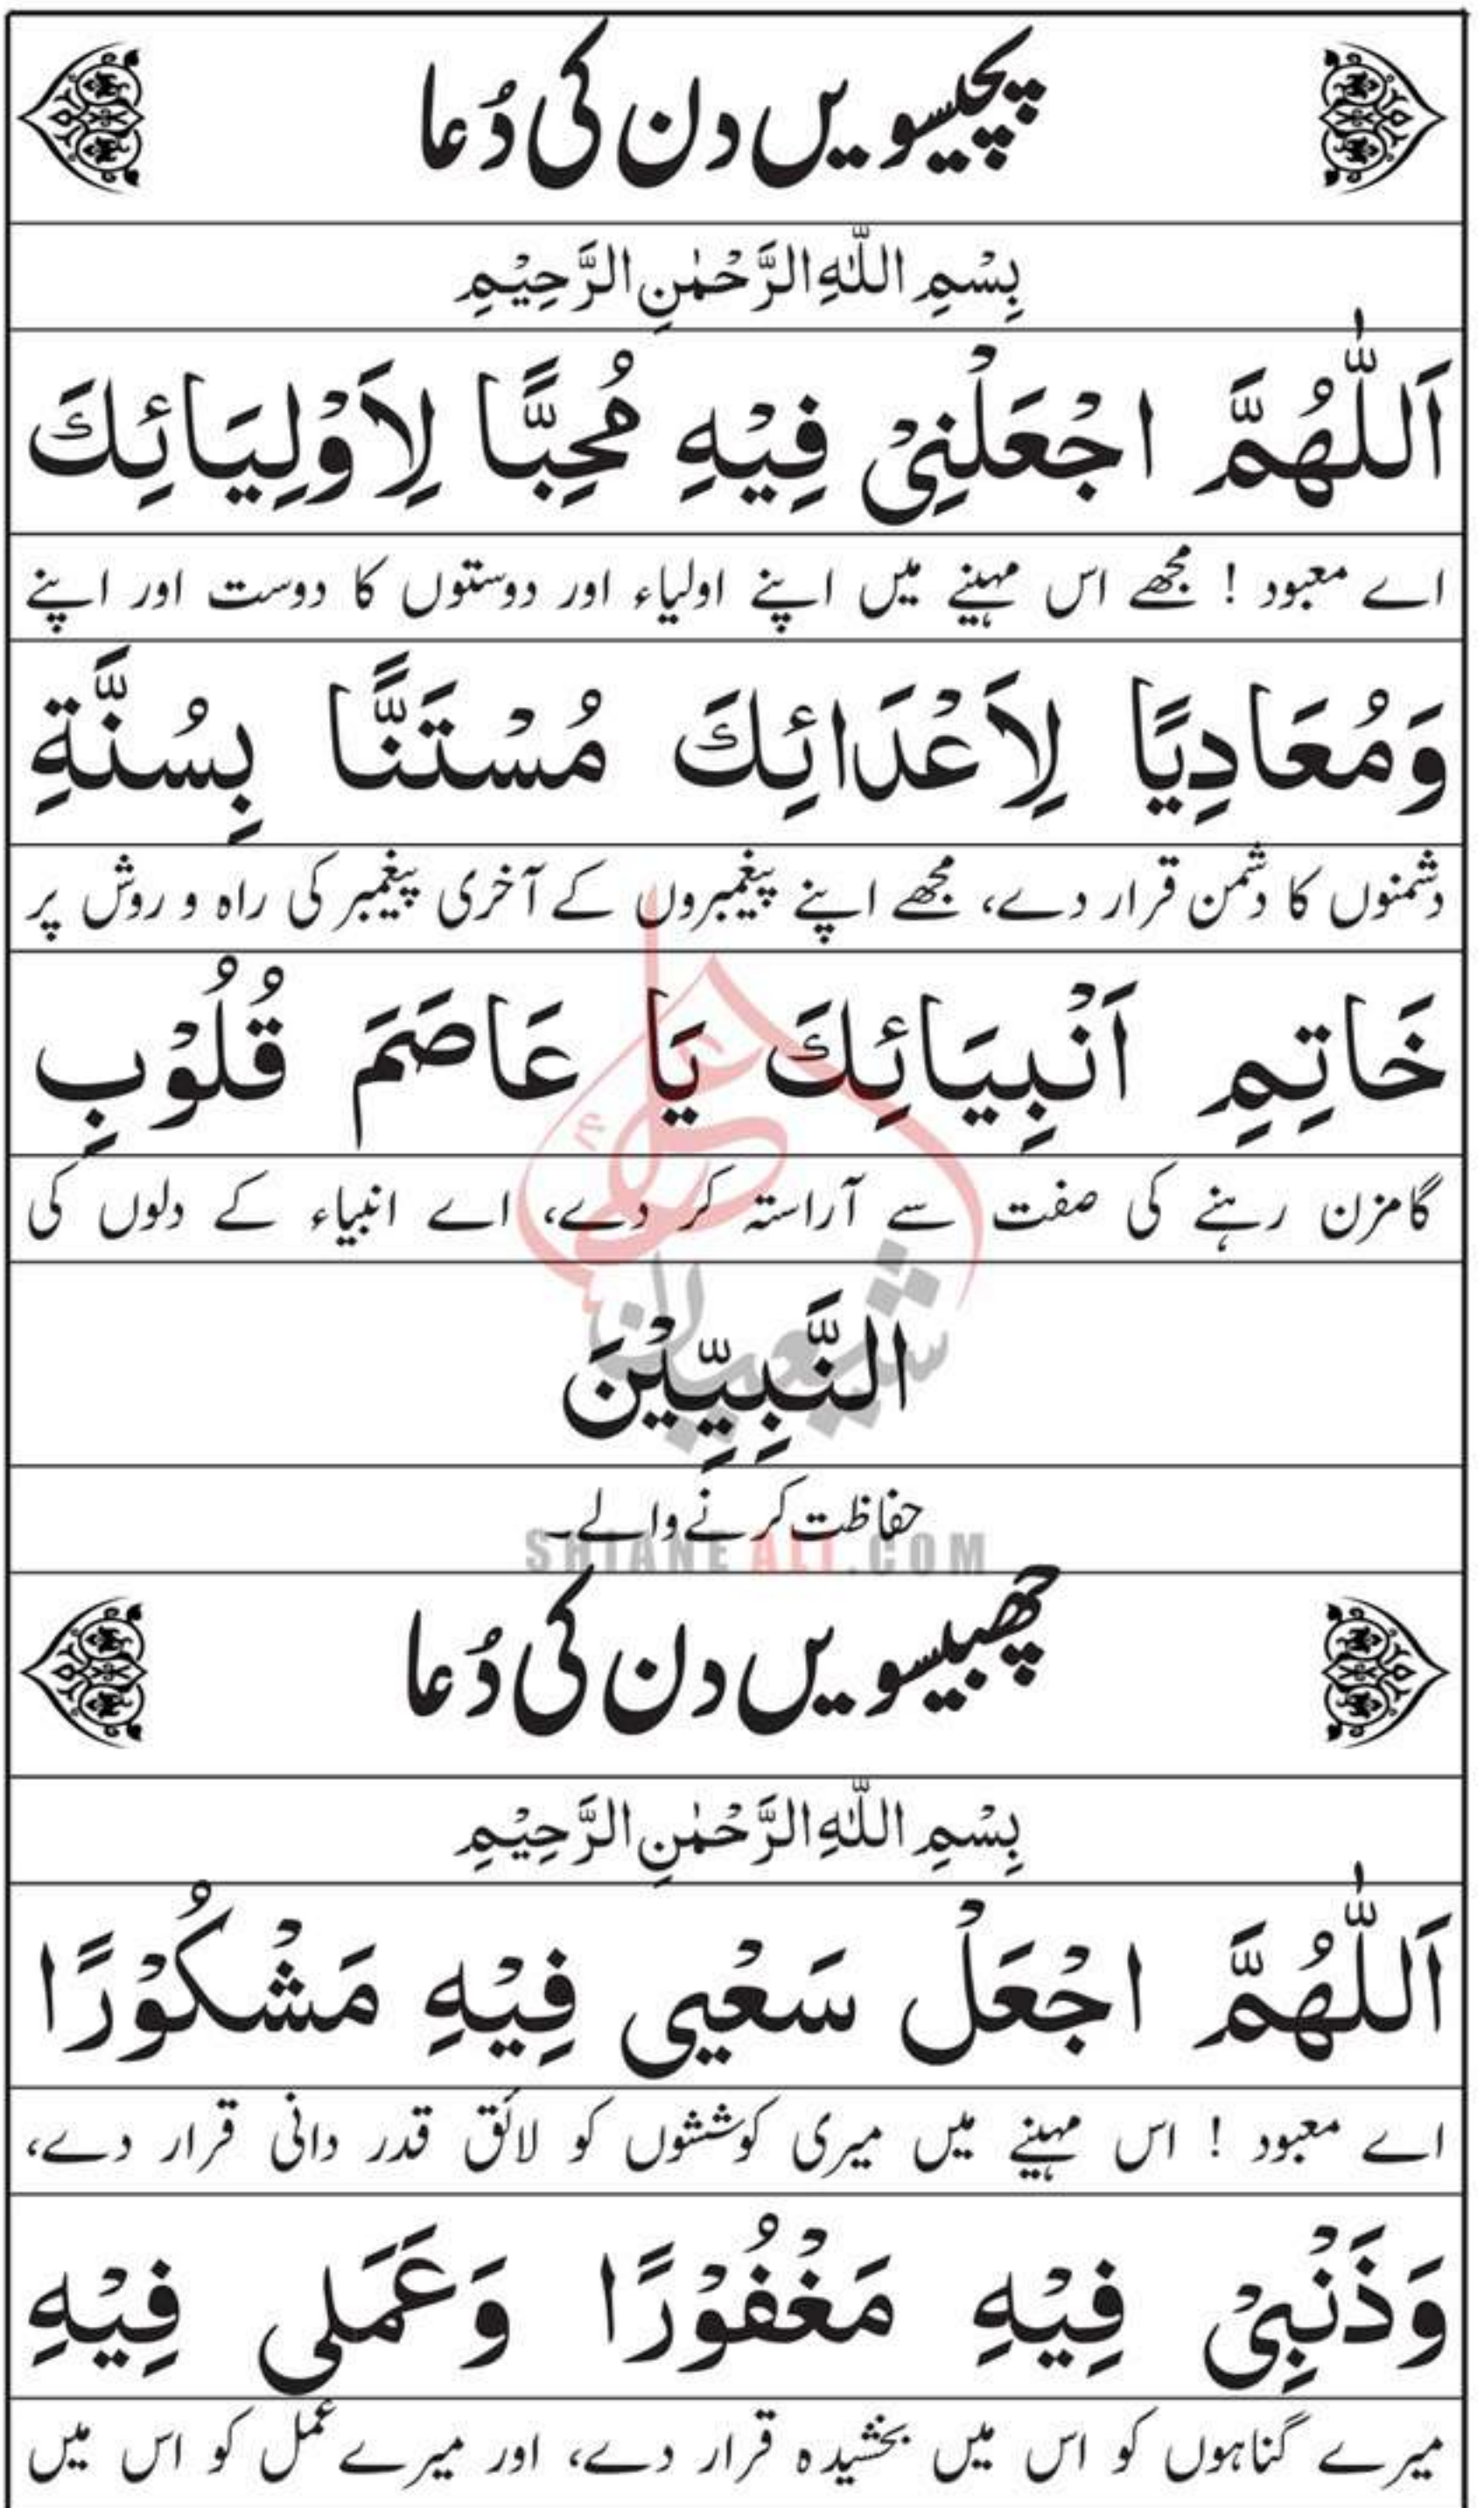 پچیسویں دن کی دُعا
بِسْمِ اللّٰهِ الرَّحْمٰنِ الرَّحِيْمِ
اَللّٰهُمَّ اجْعَلْنِيْ فِيْهِ مُحِبًّا لِاَوْلِيَائِكَ
اے معبود ! مجھے اس مہینے میں اپنے اولیاء اور دوستوں کا دوست اور اپنے
وَمُعَادِيًا لِاَعْدَائِكَ مُسْتَنًّا بِسُنَّةِ
دشمنوں کا دشمن قرار دے، مجھے اپنے پیغمبروں کے آخری پیغمبر کی راہ و روش پر
خَاتِمِ اَنْبِيَائِكَ يَا عَاصَمَ قُلُوْبِ
گامزن رہنے کی صفت سے آراستہ کر دے، اے انبیاء کے دلوں کی
النَّبِيِّيْنَ
حفاظت کرنے والے۔
شیعیان علی
SHIANEALI.COM
چھبیسویں دن کی دُعا
بِسْمِ اللّٰهِ الرَّحْمٰنِ الرَّحِيْمِ
اَللّٰهُمَّ اجْعَلْ سَعْيِي فِيْهِ مَشْكُوْرًا
اے معبود ! اس مہینے میں میری کوششوں کو لائق قدر دانی قرار دے،
وَذَنْبِيْ فِيْهِ مَغْفُوْرًا وَعَمَلِي فِيْهِ
میرے گناہوں کو اس میں بخشیدہ قرار دے، اور میرے عمل کو اس میں